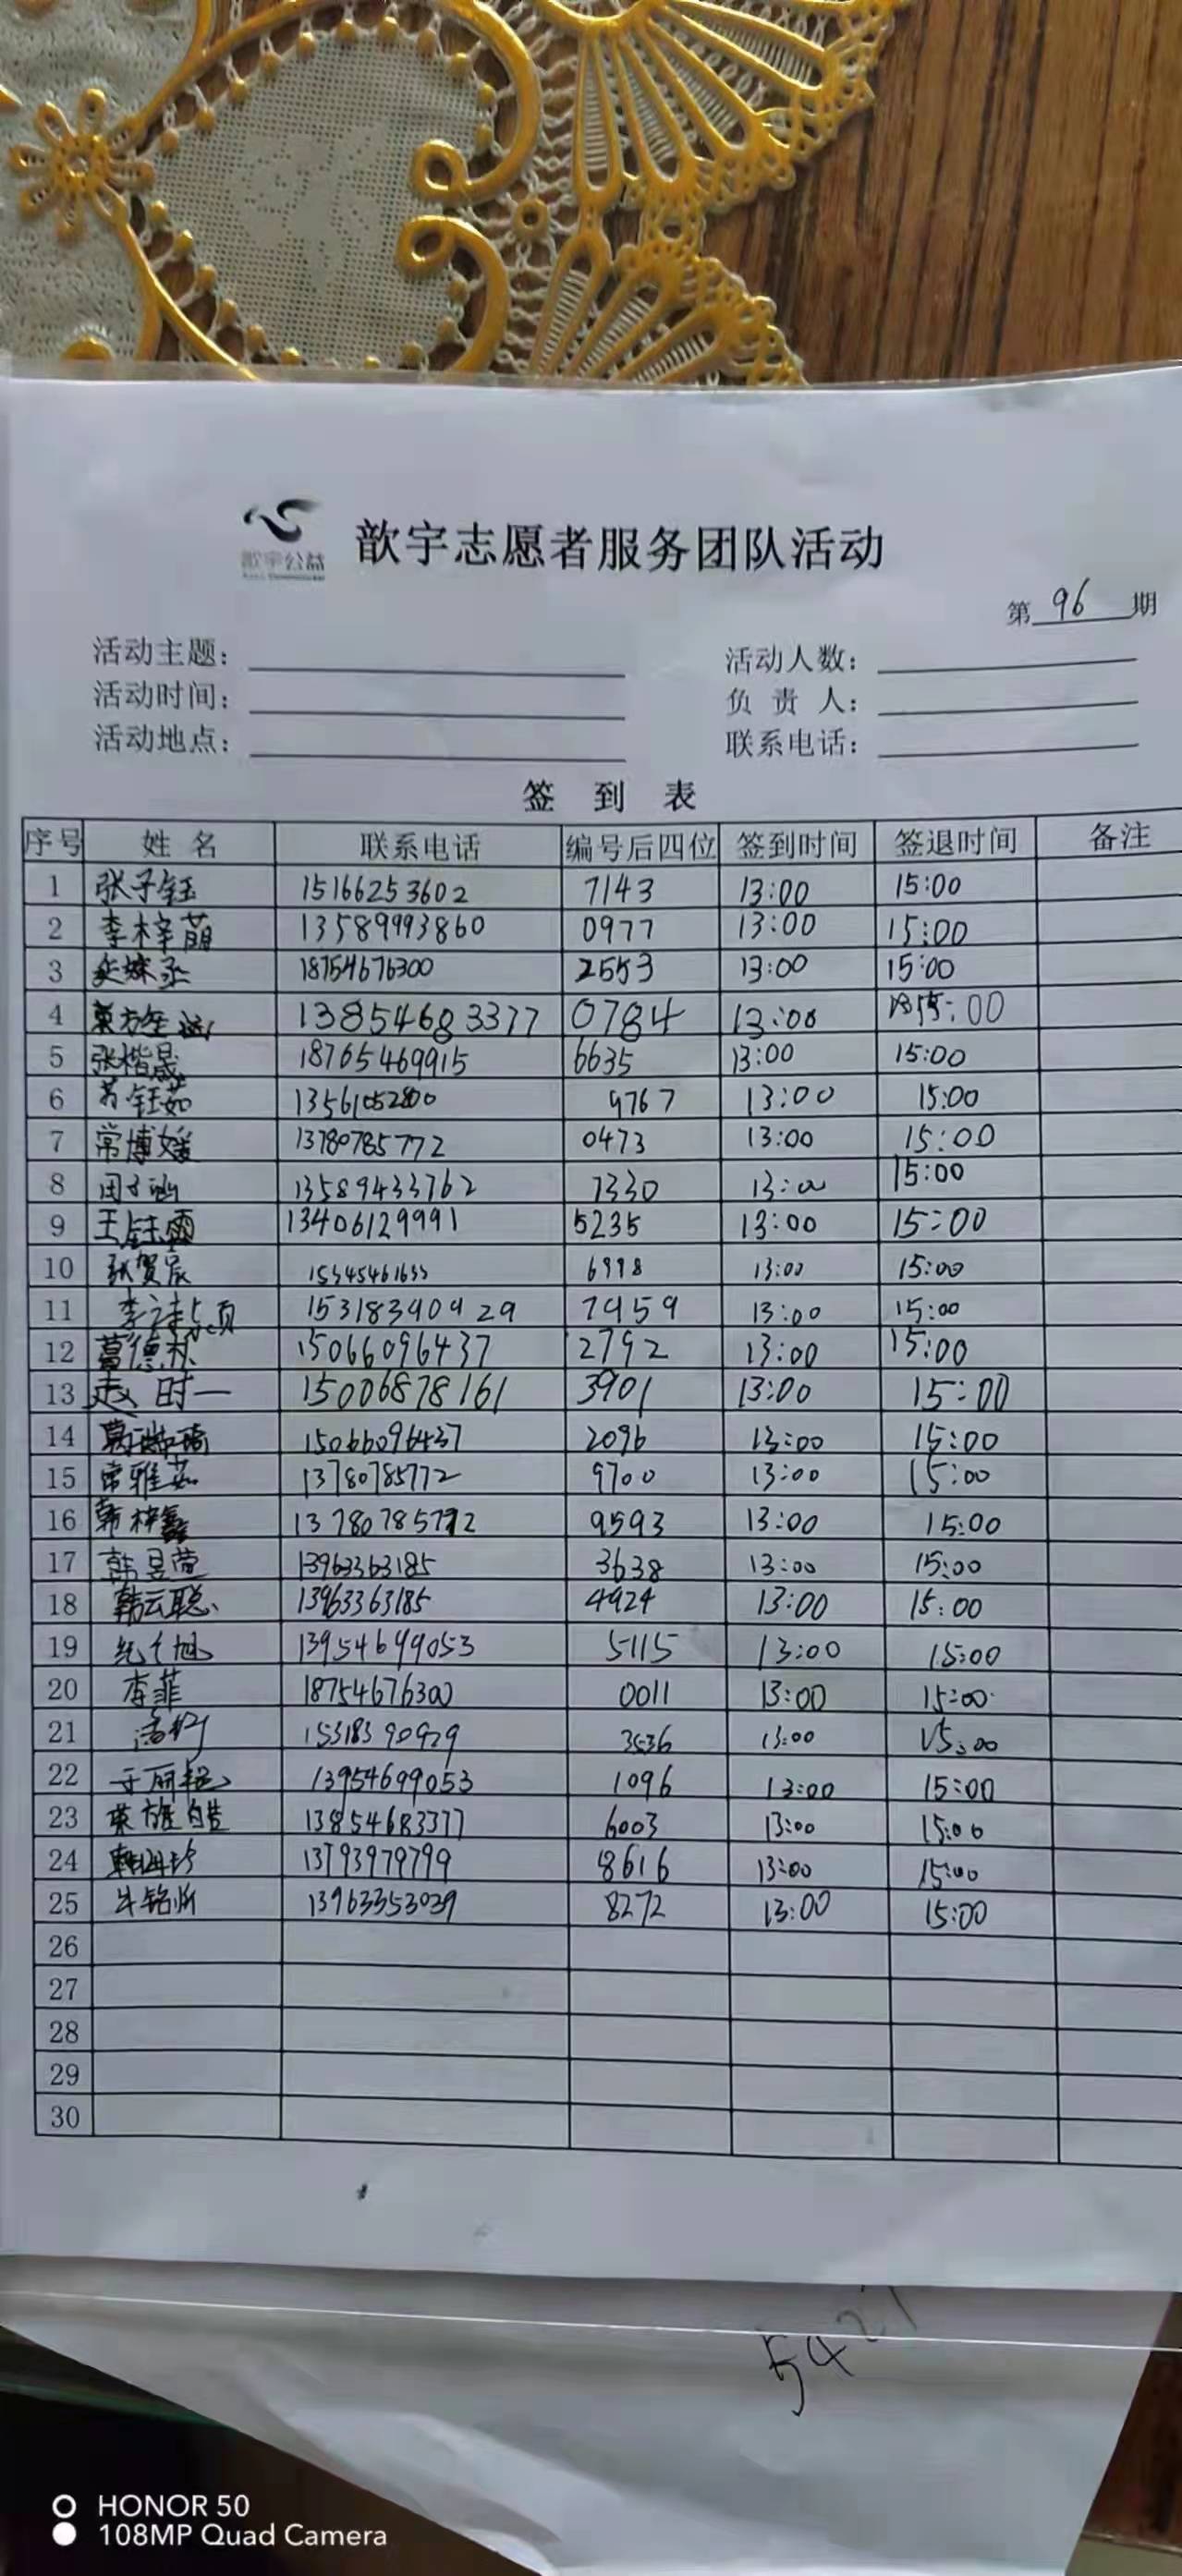 歆宇公益
歆宇志愿者服务团队活动
第 96 期
活动主题： 活动人数：
活动时间： 负责人：
活动地点： 联系电话：
签到表
序号 姓名 联系电话 编号后四位 签到时间 签退时间 备注
1 张子钰 15166253602 7143 13:00 15:00
2 李梓萌 13589993860 0977 13:00 15:00
3 18754676300 2553 13:00 15:00
4 13854683377 0784 13:00 15:00
5 张楷晟 18765469915 6635 13:00 15:00
6 钰茹 13561052800 9767 13:00 15:00
7 常博媛 13780785772 0473 13:00 15:00
8 田子 13589433762 7330 13:00 15:00
9 王钰霖 13406129991 5235 13:00 15:00
10 张贺宸 15345461633 6998 13:00 15:00
11 李 15318390929 7959 13:00 15:00
12 葛德林 15066096437 2792 13:00 15:00
13 赵时一 15006878161 3901 13:00 15:00
14 15066096437 2096 13:00 15:00
15 常雅茹 13780785772 9700 13:00 15:00
16 韩梓鑫 13780785772 9593 13:00 15:00
17 韩昱萱 13963363185 3638 13:00 15:00
18 韩云聪 13963363185 4924 13:00 15:00
19 13954699053 5115 13:00 15:00
20 李菲 18754676300 0011 13:00 15:00
21 15318390929 3536 13:00 15:00
22 于丽艳 13954699053 1096 13:00 15:00
23 13854683377 6003 13:00 15:00
24 13793979799 8616 13:00 15:00
25 牛铭 13963353039 8272 13:00 15:00
26
27
28
29
30
542
HONOR 50
108MP Quad Camera